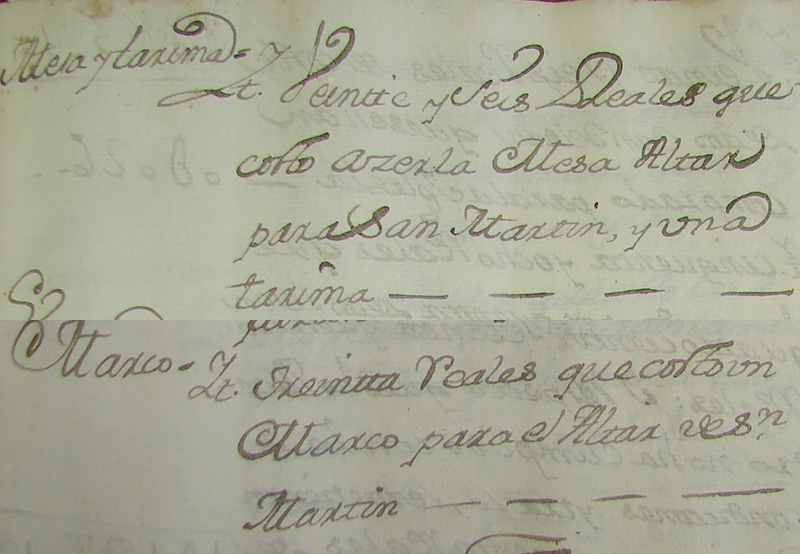 Mesa y tarima=
Yt. Veintte y seis Reales que
costo azer la Mesa Altar
para San Martin, y una
tarima
Marco= Yt. Treintta Reales que costo un
Marco para el Altar de Sn
Martin